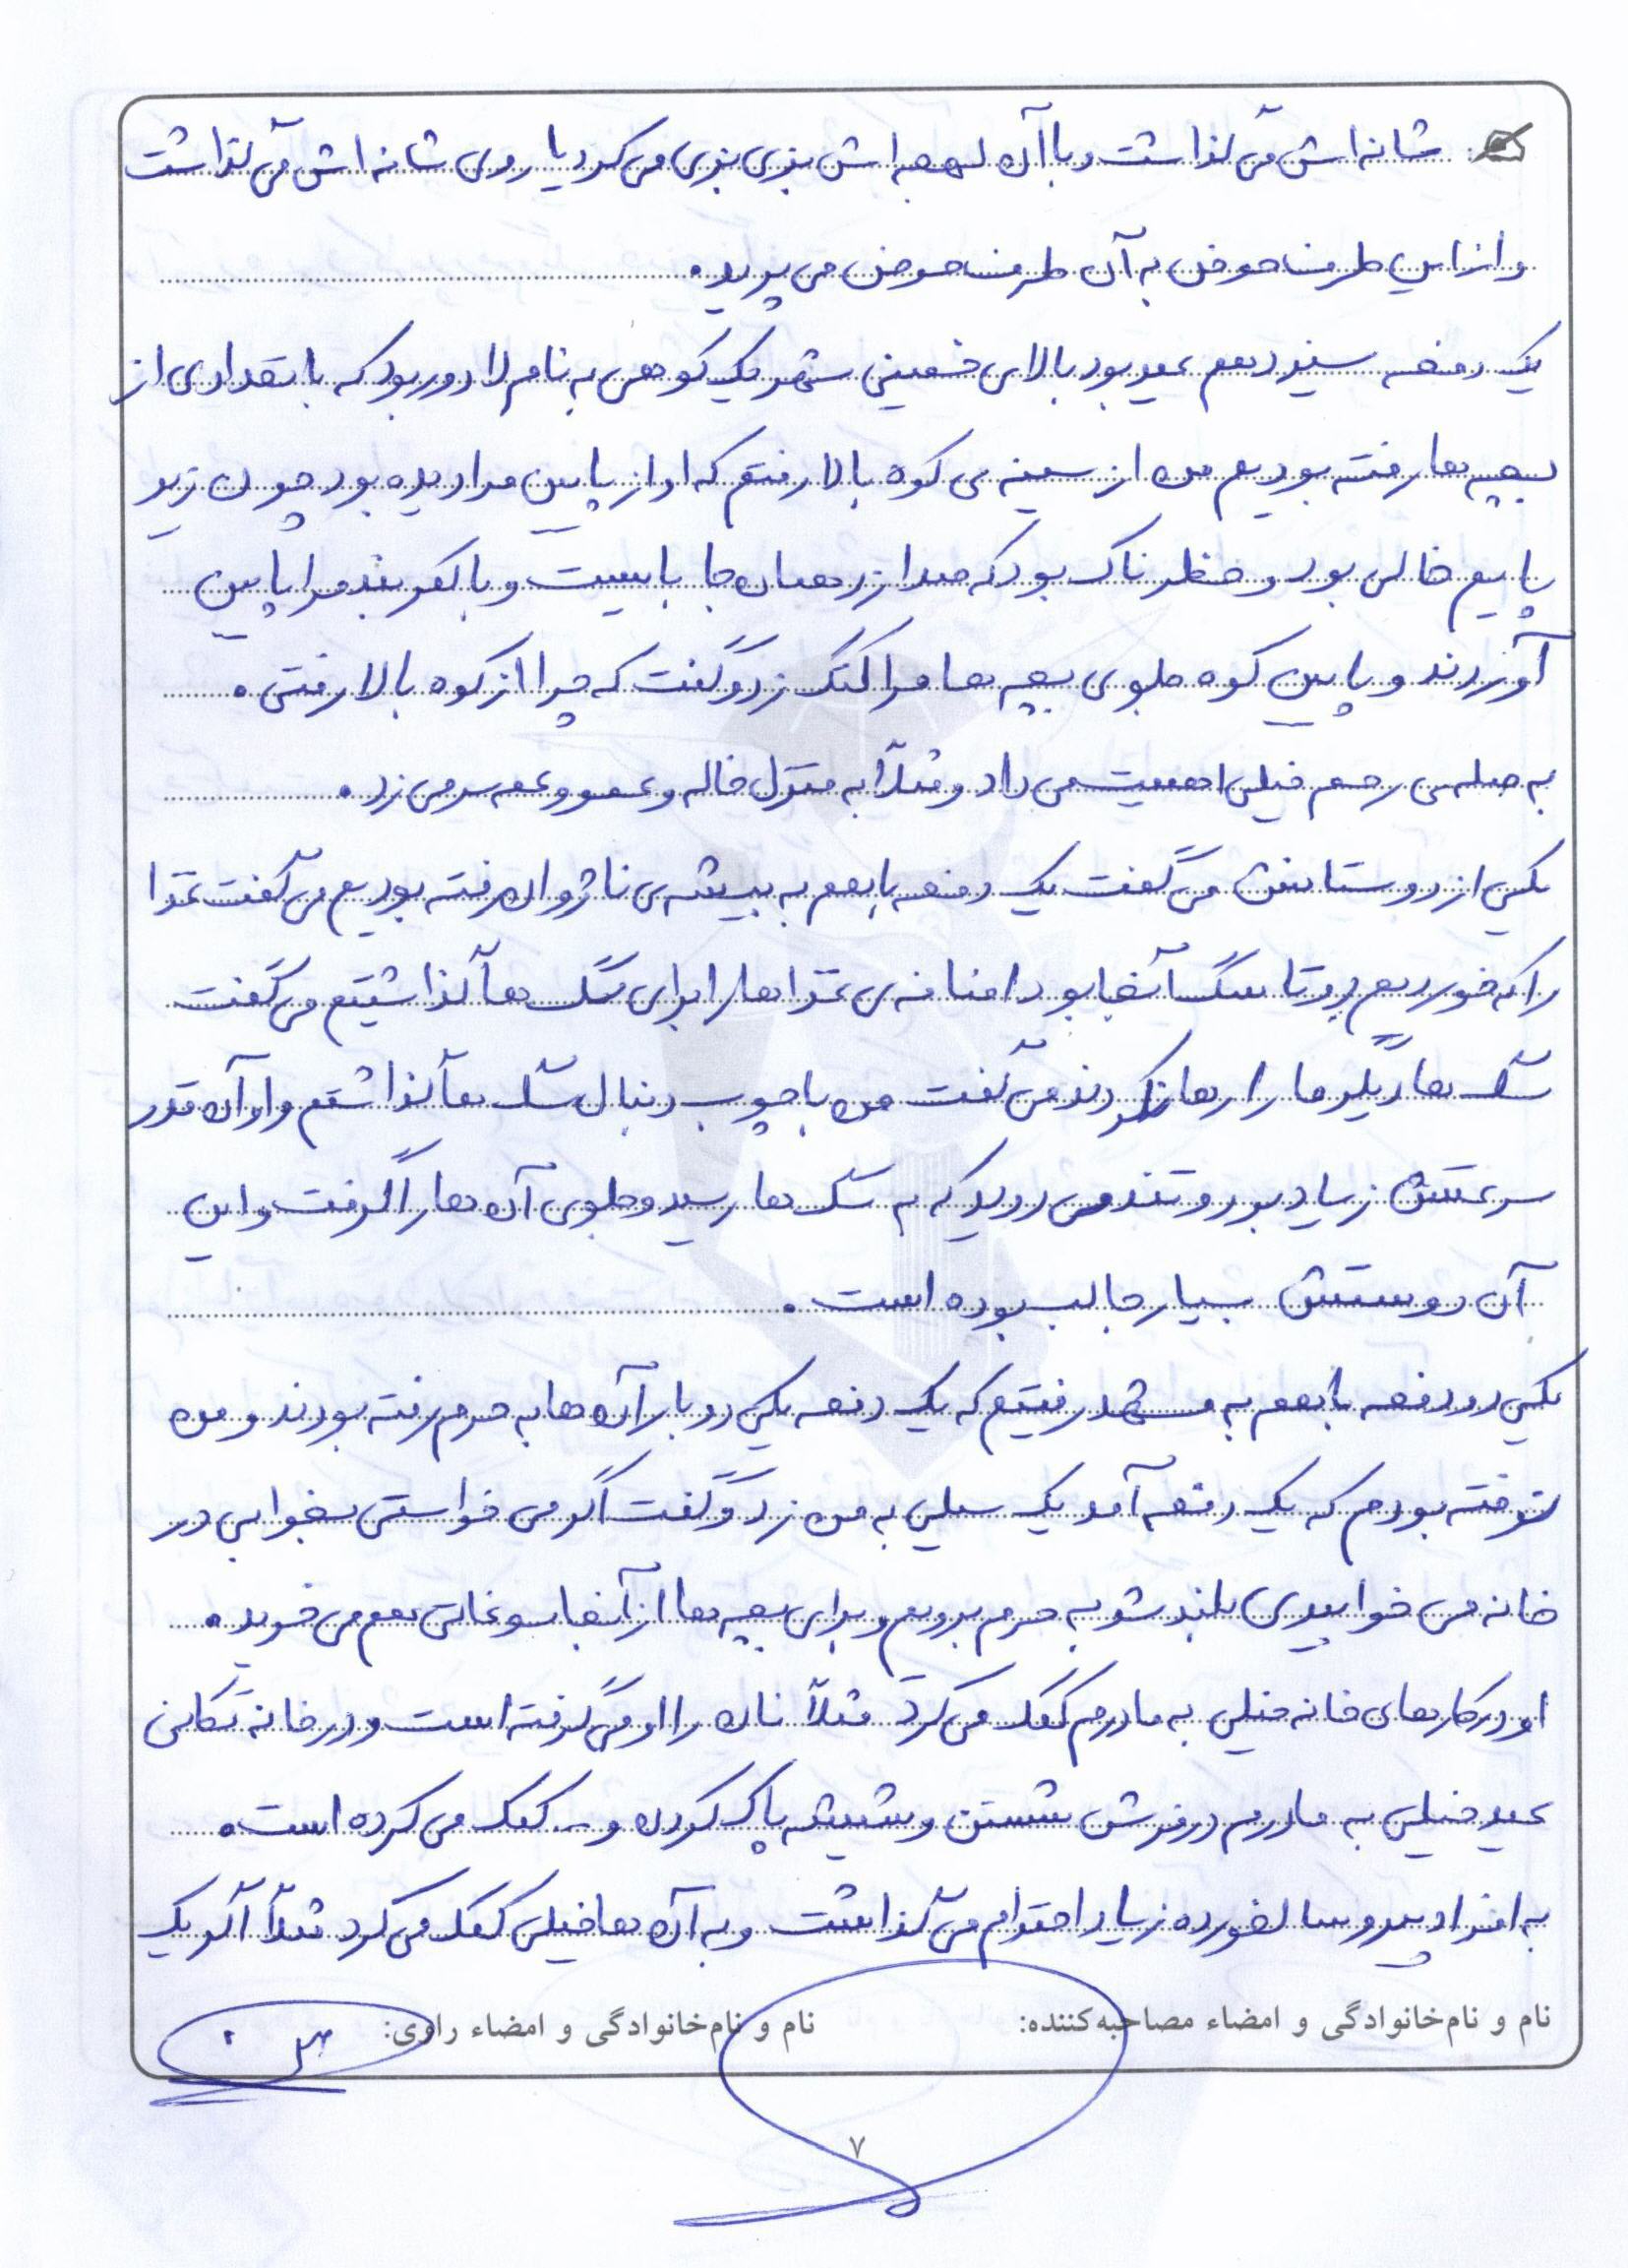 شانه اش می گذاشت و با آن لهجه اش بزی بزی می کرد یا روی شانه اش می گذاشت
و از این طرف حوض به آن طرف حوض می پرید.
یک دفعه سیزدهم عید بود بالای خمینی شهر یک کوهی به نام لادور بود که با تعدادی از
بچه ها رفته بودیم من از سینه ی کوه بالا رفتم که او از پایین مرا دیده بود چون زیر
پایم خالی بود و خطرناک بود که صدا زد همان جا بایست و با کمربند مرا پایین
آوردند و پایین کوه جلوی بچه ها مرا کتک زد و گفت که چرا از کوه بالا رفتی.
به صله ی رحم خیلی اهمیت می داد و مثلاً به منزل خاله و عمو و عمه سر می زد.
یکی از دوستانش می گفت یک دفعه با هم به بیشه ی ناژوان رفته بودیم می گفت غذا
را که خوردیم دو تا سگ آنجا بود اضافه ی غذاها را برای سگ ها گذاشتیم می گفت
سگ ها دیگر ما را رها نکردند می گفت من با چوب دنبال سگ ها گذاشتم و او آن قدر
سرعتش زیاد بود و تند می دوید که به سگ ها رسید و جلوی آن ها را گرفت و این
آن دوستش بسیار جالب بوده است.
یکی دو دفعه با هم به مشهد رفتیم که یک دفعه یکی دو بار آن ها به حرم رفته بودند و من
نرفته بودم که یک دفعه آمد یک سیلی به من زد و گفت اگر می خواستی بخوابی در
خانه می خوابیدی بلند شو به حرم برویم و برای بچه ها از آنجا سوغاتی هم می خرید.
او در کارهای خانه خیلی به مادرم کمک می کرد مثلاً نان را او می گرفته است و در خانه تکانی
عید خیلی به مادرم در فرش شستن و شیشه پاک کردن و... کمک می کرده است.
به افراد پیر و سالخورده زیاد احترام می گذاشت و به آن ها خیلی کمک می کرد مثلاً اگر یک
نام و نام‌خانوادگی و امضاء مصاحبه‌کننده: نام و نام‌خانوادگی و امضاء راوی:
۷